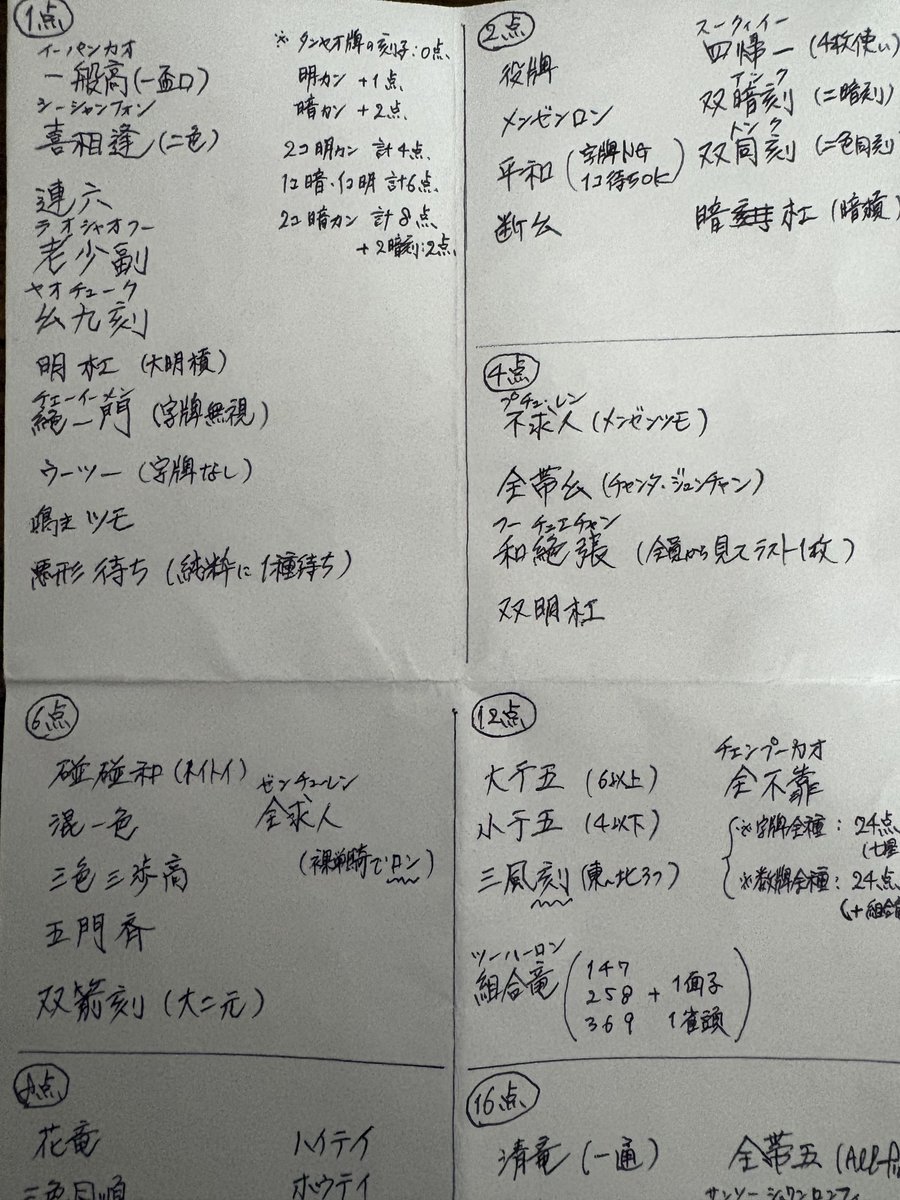 1点
イーパンカオ
一般高(一盃口)
シーシャンフォン
喜相逢(二色)
連六
ラオシャオフー
老少副
ヤオチューク
幺九刻
明杠(大明槓)
チェーイーメン
絶一門(字牌無視)
ウーツー(字牌なし)
ツモ
悪形待ち(純粋に1種待ち)
※タンヤオ牌の刻子:0点
明カン +1点
暗カン +2点
2コ明カン 計4点
1コ暗・1コ明 計6点
2コ暗カン 計8点
+2暗刻:2点
2点
役牌
メンゼンロン
平和(字牌NG
1コ待ちOK)
断幺
スークィイー
四帰一(4枚使い)
アンク
双暗刻(二暗刻)
トンク
双同刻(二色同刻
暗杠(暗槓)
4点
プチューレン
不求人(メンゼンツモ)
全帯幺(チャンタ・ジュンチャン)
フーチュエチャン
和絶張(全員から見てラスト1枚)
双明杠
6点
碰碰和(トイトイ)
混一色
三色三歩高
五門斉
双箭刻(大二元)
ゼンチューレン
全求人
(裸単騎でロン)
12点
大于五(6以上)
小于五(4以下)
三風刻(東〜北3つ)
ツーハーロン
組合竜
147
258 + 1面子
369 1雀頭
チェンプーカオ
全不靠
※字牌全種:24点
(七星
※数牌全種:24点
(+組合
8点
花竜
三色同順
ハイテイ
ホウテイ
16点
清竜(一通)
全帯五(All-fi